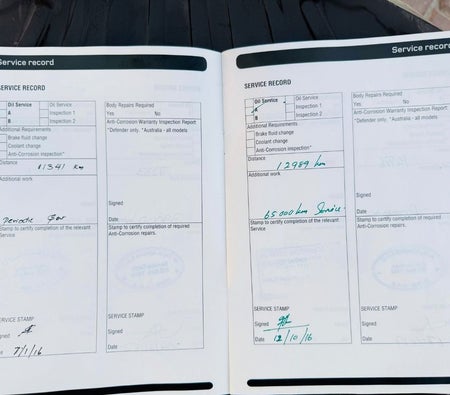 Service record
SERVICE RECORD
Oil Service
A
B
Oil Service
Inspection 1
Inspection 2
Additional Requirements
Brake fluid change
Coolant change
Anti-Corrosion inspection*
Distance
11341 Km
Additional work
Stamp to certify completion of the relevant
Service
SERVICE STAMP
Signed
Date
7/1/16
Body Repairs Required
Yes No
Anti-Corrosion Warranty Inspection Report
*Defender only. *Australia - all models
Signed
Date
Stamp to certify completion of required
Anti-Corrosion repairs.
Service record
SERVICE RECORD
Oil Service
A
B
Oil Service
Inspection 1
Inspection 2
Additional Requirements
Brake fluid change
Coolant change
Anti-Corrosion inspection*
Distance
12989 km
Additional work
65.000 km Service.
Stamp to certify completion of the relevant
Service
SERVICE STAMP
Signed
Date 12/10/16
Body Repairs Required
Yes No
Anti-Corrosion Warranty Inspection Report
*Defender only. *Australia - all models
Signed
Date
Stamp to certify completion of required
Anti-Corrosion repairs.